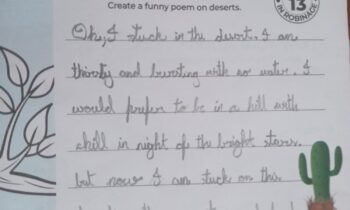 Create a funny poem on deserts.
13
IN ROBINAGE
Oh, I stuck in the desert. I am
thirsty and bursting with no water. I
would prefer to be in a hill with
chill in night of the bright stars.
but now I am stuck on this